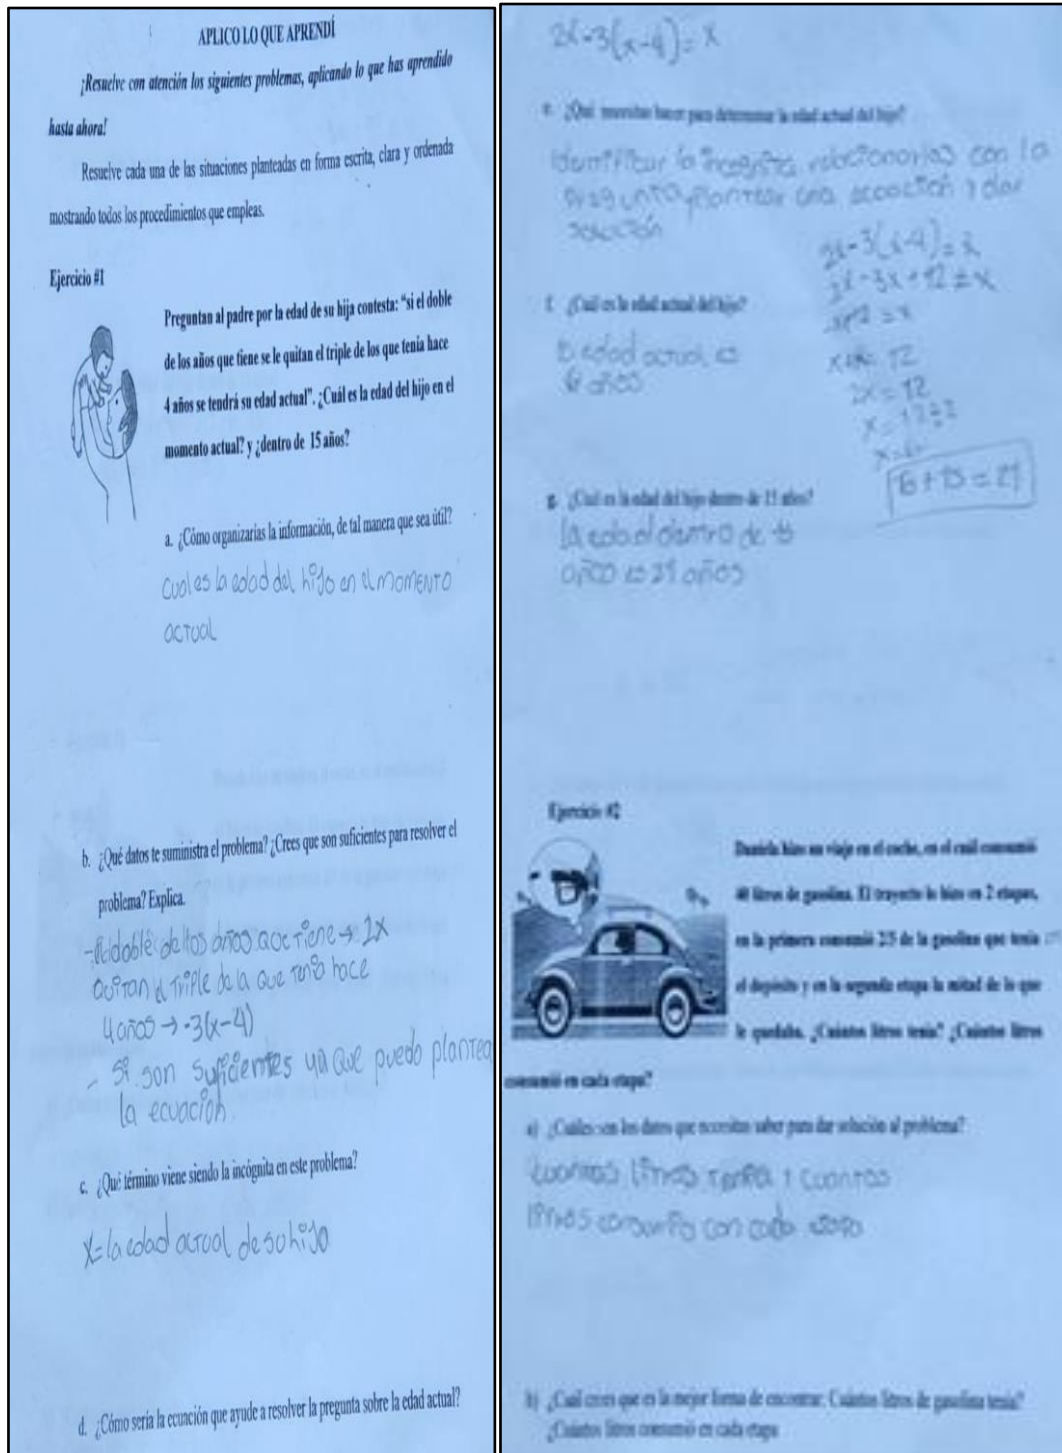 APLICO LO QUE APRENDÍ
¡Resuelve con atención los siguientes problemas, aplicando lo que has aprendido
hasta ahora!
Resuelve cada una de las situaciones planteadas en forma escrita, clara y ordenada
mostrando todos los procedimientos que empleas.
Ejercicio #1
Preguntan al padre por la edad de su hija contesta: “si el doble
de los años que tiene se le quitan el triple de los que tenía hace
4 años se tendrá su edad actual”. ¿Cuál es la edad del hijo en el
momento actual? y ¿dentro de 15 años?
a. ¿Cómo organizarías la información, de tal manera que sea útil?
Cual es la edad del hijo en el momento
actual
b. ¿Qué datos te suministra el problema? ¿Crees que son suficientes para resolver el
problema? Explica.
doble de los años que tiene → 2x
Quitan el triple de la que tenia hace
4 años → -3(x-4)
- Si son suficientes ya que puedo plantea
la ecuación.
c. ¿Qué término viene siendo la incógnita en este problema?
x= la edad actual de su hijo
d. ¿Cómo sería la ecuación que ayude a resolver la pregunta sobre la edad actual?
2x-3(x-4)= x
e. ¿Qué necesitas hacer para determinar la edad actual del hijo?
Identificar la incognita relacionarlas con la
pregunta, plantear una ecuación y dar
solución
2x-3(x-4)=x
2x-3x+12=x
= x
12
2x=12
x=12÷2
6+15=21
f. ¿Cuál es la edad actual del hijo?
edad actual es
6 años
g. ¿Cuál es la edad del hijo dentro de 15 años?
la edad dentro de 15
años es 21 años
Ejercicio #2
Daniela hizo un viaje en el coche, en el cuál consumió
litros de gasolina. El trayecto lo hizo en 2 etapas,
en la primera consumió 2/5 de la gasolina que tenía
el depósito y en la segunda etapa la mitad de lo que
le quedaba. ¿Cuántos litros tenía? ¿Cuántos litros
consumió en cada etapa?
a) ¿Cuáles son los datos que necesitas saber para dar solución al problema?
cuantos litros tenia y cuantos
litros con cada etapa
b) ¿Cuál crees que es la mejor forma de encontrar: Cuántos litros de gasolina tenía?
¿Cuántos litros consumió en cada etapa